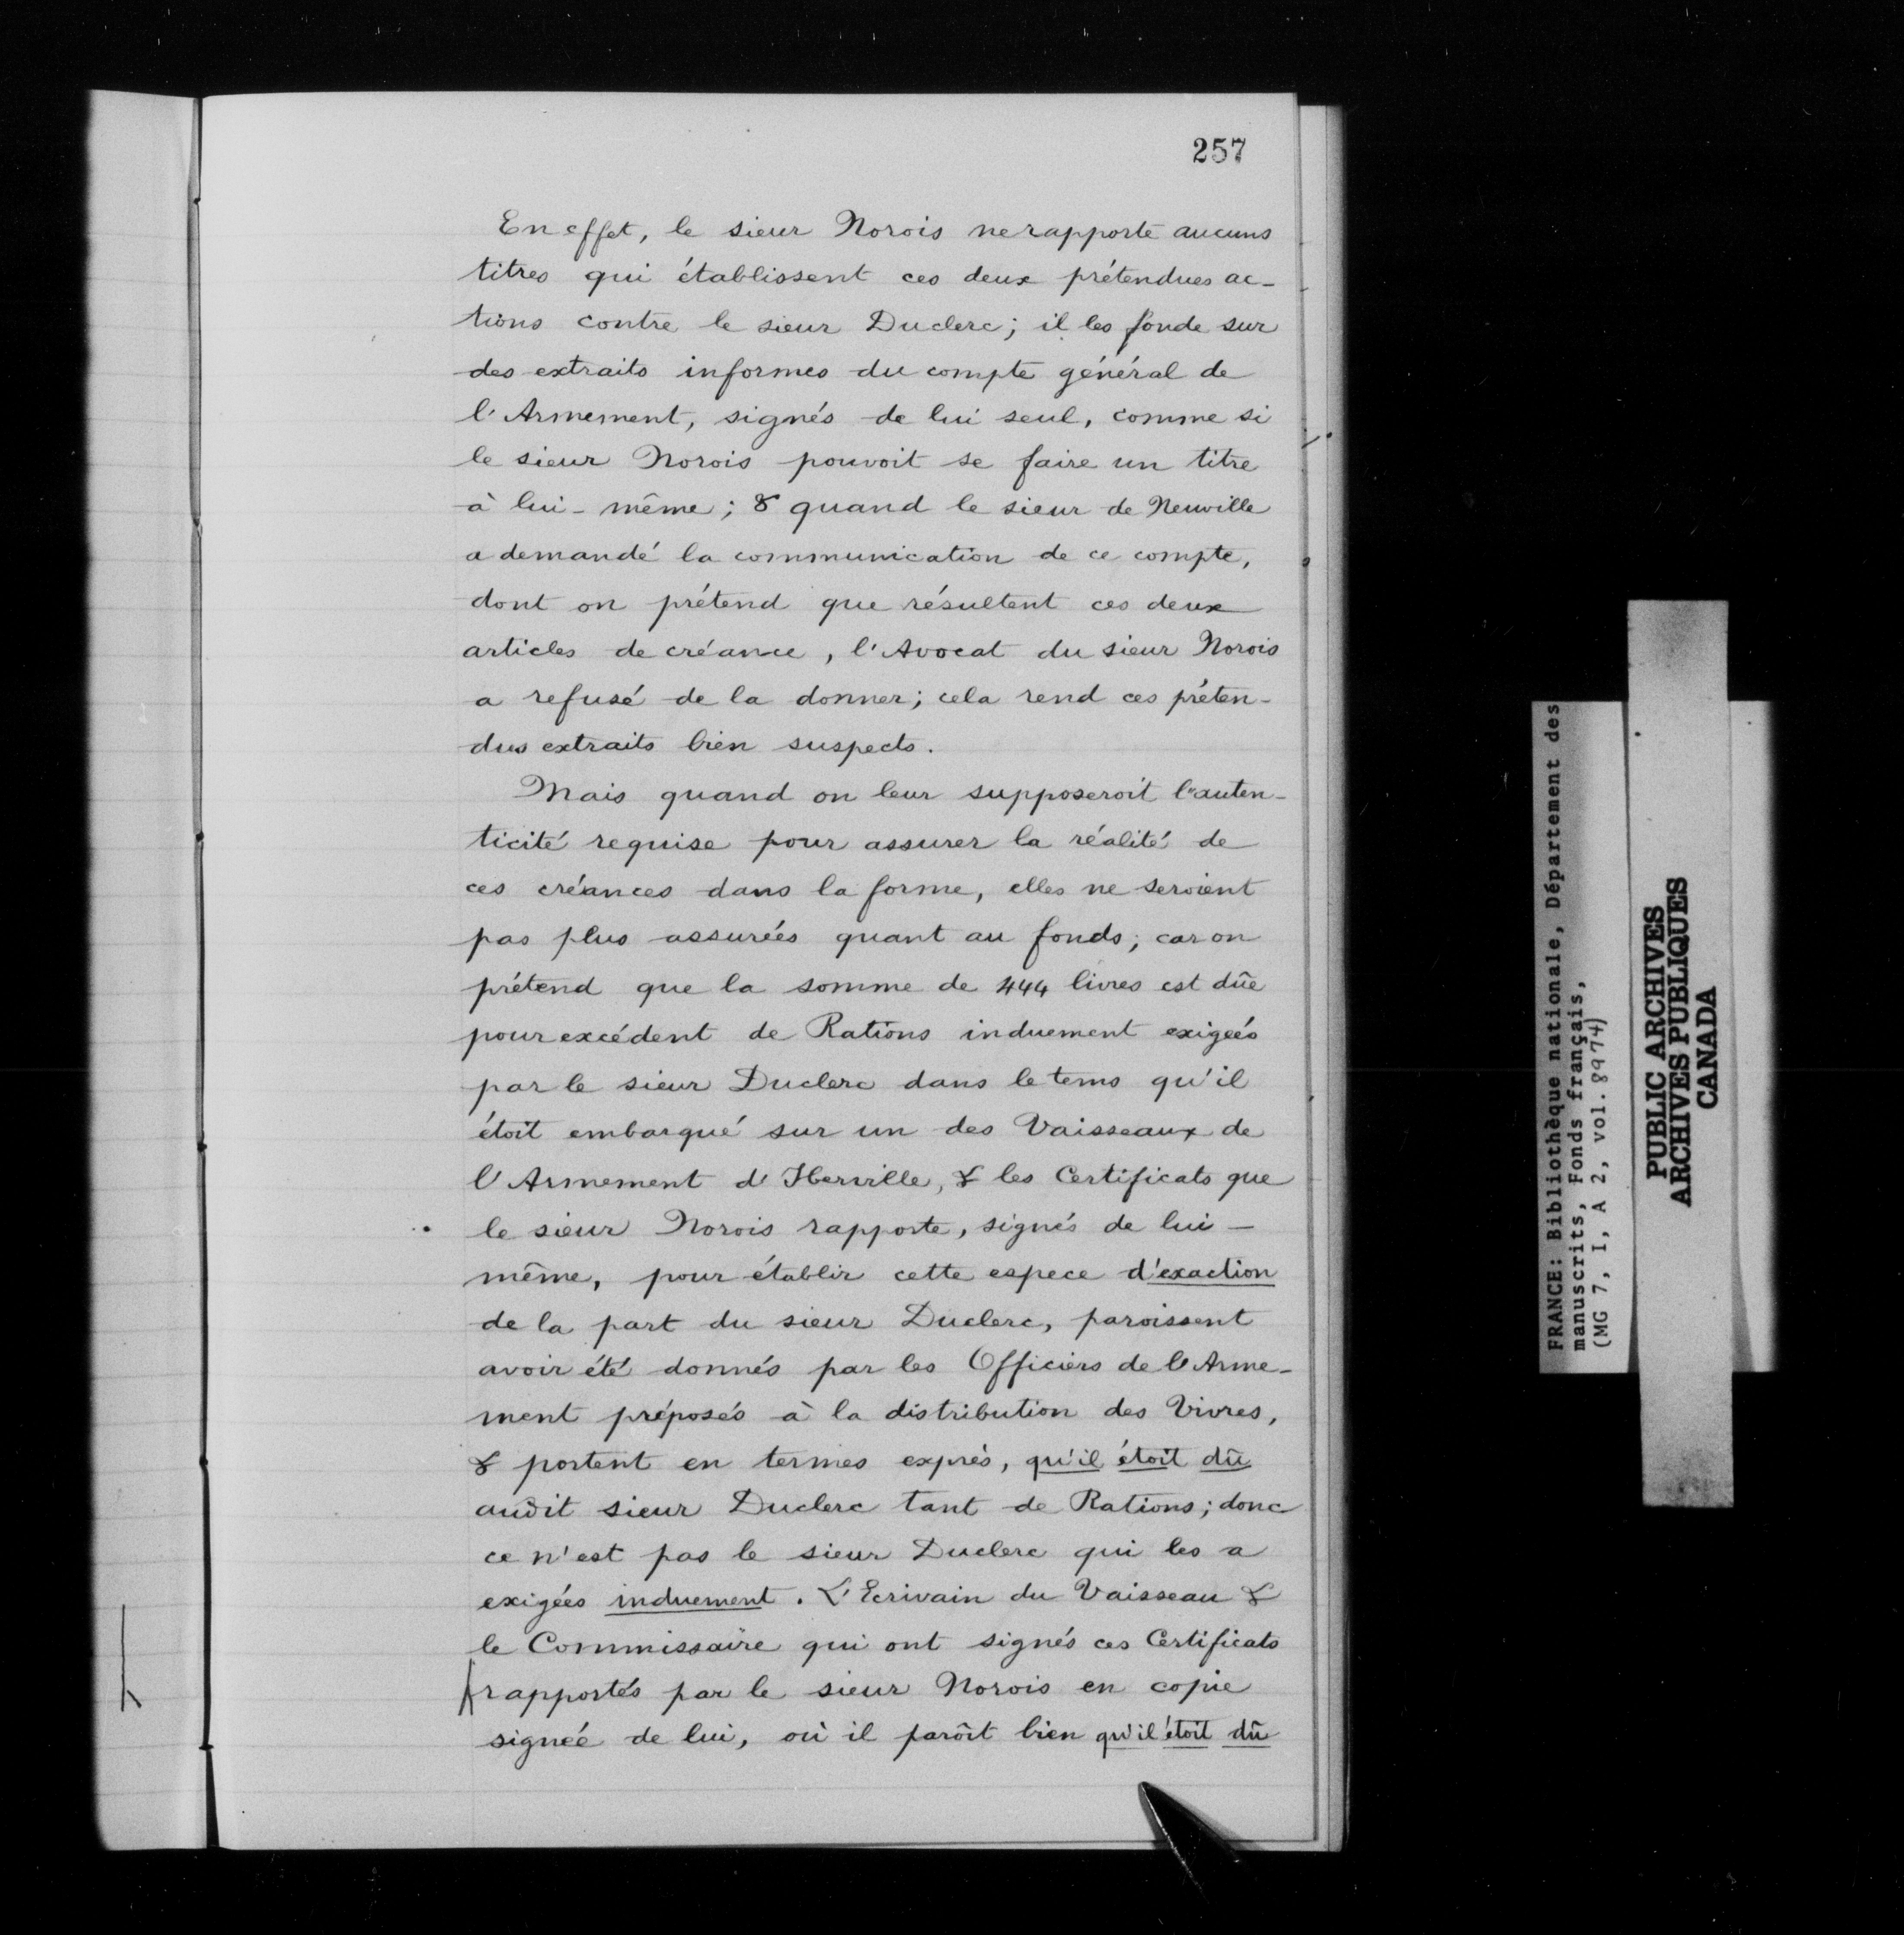 257
En effet, le sieur Norois ne rapporte aucuns
titres qui établissent ces deux prétendues ac-
tions contre le sieur Duclerc; il les fonde sur
des extraits informes du compte général de
l'Armement, signés de lui seul, comme si
le sieur Norois pouvoit se faire un titre
à lui-même; & quand le sieur de Neuville
a demandé la communication de ce compte,
dont on prétend que résultent ces deux
articles de créance, l'Avocat du sieur Norois
a refusé de la donner; cela rend ces préten-
dus extraits bien suspects.
Mais quand on leur supposeroit l'auten-
ticité requise pour assurer la réalité de
ces créances dans la forme, elles ne seroient
pas plus assurées quant au fonds; car on
prétend que la somme de 444 livres est dûe
pour excédent de Rations induement exigées
par le sieur Duclerc dans le tems qu'il
étoit embarqué sur un des Vaisseaux de
l'Armement d'Iberville, & les Certificats que
le sieur Norois rapporte, signés de lui-
même, pour établir cette espece d'exaction
de la part du sieur Duclerc, paroissent
avoir été donnés par les Officiers de l'Arme-
ment préposés à la distribution des Vivres,
& portent en termes exprès, qu'il étoit dû
audit sieur Duclerc tant de Rations; donc
ce n'est pas le sieur Duclerc qui les a
exigées induement. L'Ecrivain du Vaisseau &
le Commissaire qui ont signés ces Certificats
rapportés par le sieur Norois en copie
signée de lui, où il paroît bien qu'il étoit dû
FRANCE: Bibliothèque nationale, Département des
manuscrits, Fonds français,
(MG 7, I, A 2, vol. 8974)
PUBLIC ARCHIVES
ARCHIVES PUBLIQUES
CANADA